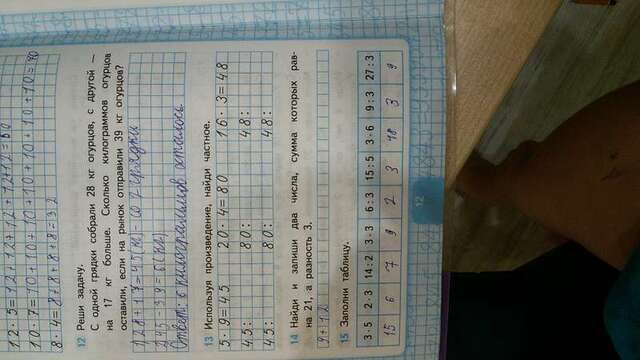 12 · 5 = 12 + 12 + 12 + 12 + 12 = 60
10 · 7 = 10 + 10 + 10 + 10 + 10 + 10 + 10 = 70
8 · 4 = 8 + 8 + 8 + 8 = 32
12 Реши задачу.
С одной грядки собрали 28 кг огурцов, с другой —
на 17 кг больше. Сколько килограммов огурцов
оставили, если на рынок отправили 39 кг огурцов?
1 28 + 17 = 45 (кг) – со 2 грядки
2 45 – 39 = 6 (кг)
Ответ: 6 килограммов осталось
13 Используя произведение, найди частное.
5 · 9 = 45 20 · 4 = 80 16 · 3 = 48
45 : 80 : 48 :
45 : 80 : 48 :
14 Найди и запиши два числа, сумма которых рав-
на 21, а разность 3.
9 + 12
15 Заполни таблицу.
3 · 5 2 · 3 14 : 2 3 · 3 6 : 3 15 : 5 3 · 6 9 : 3 27 : 3
15 6 7 9 2 3 18 3 9
12